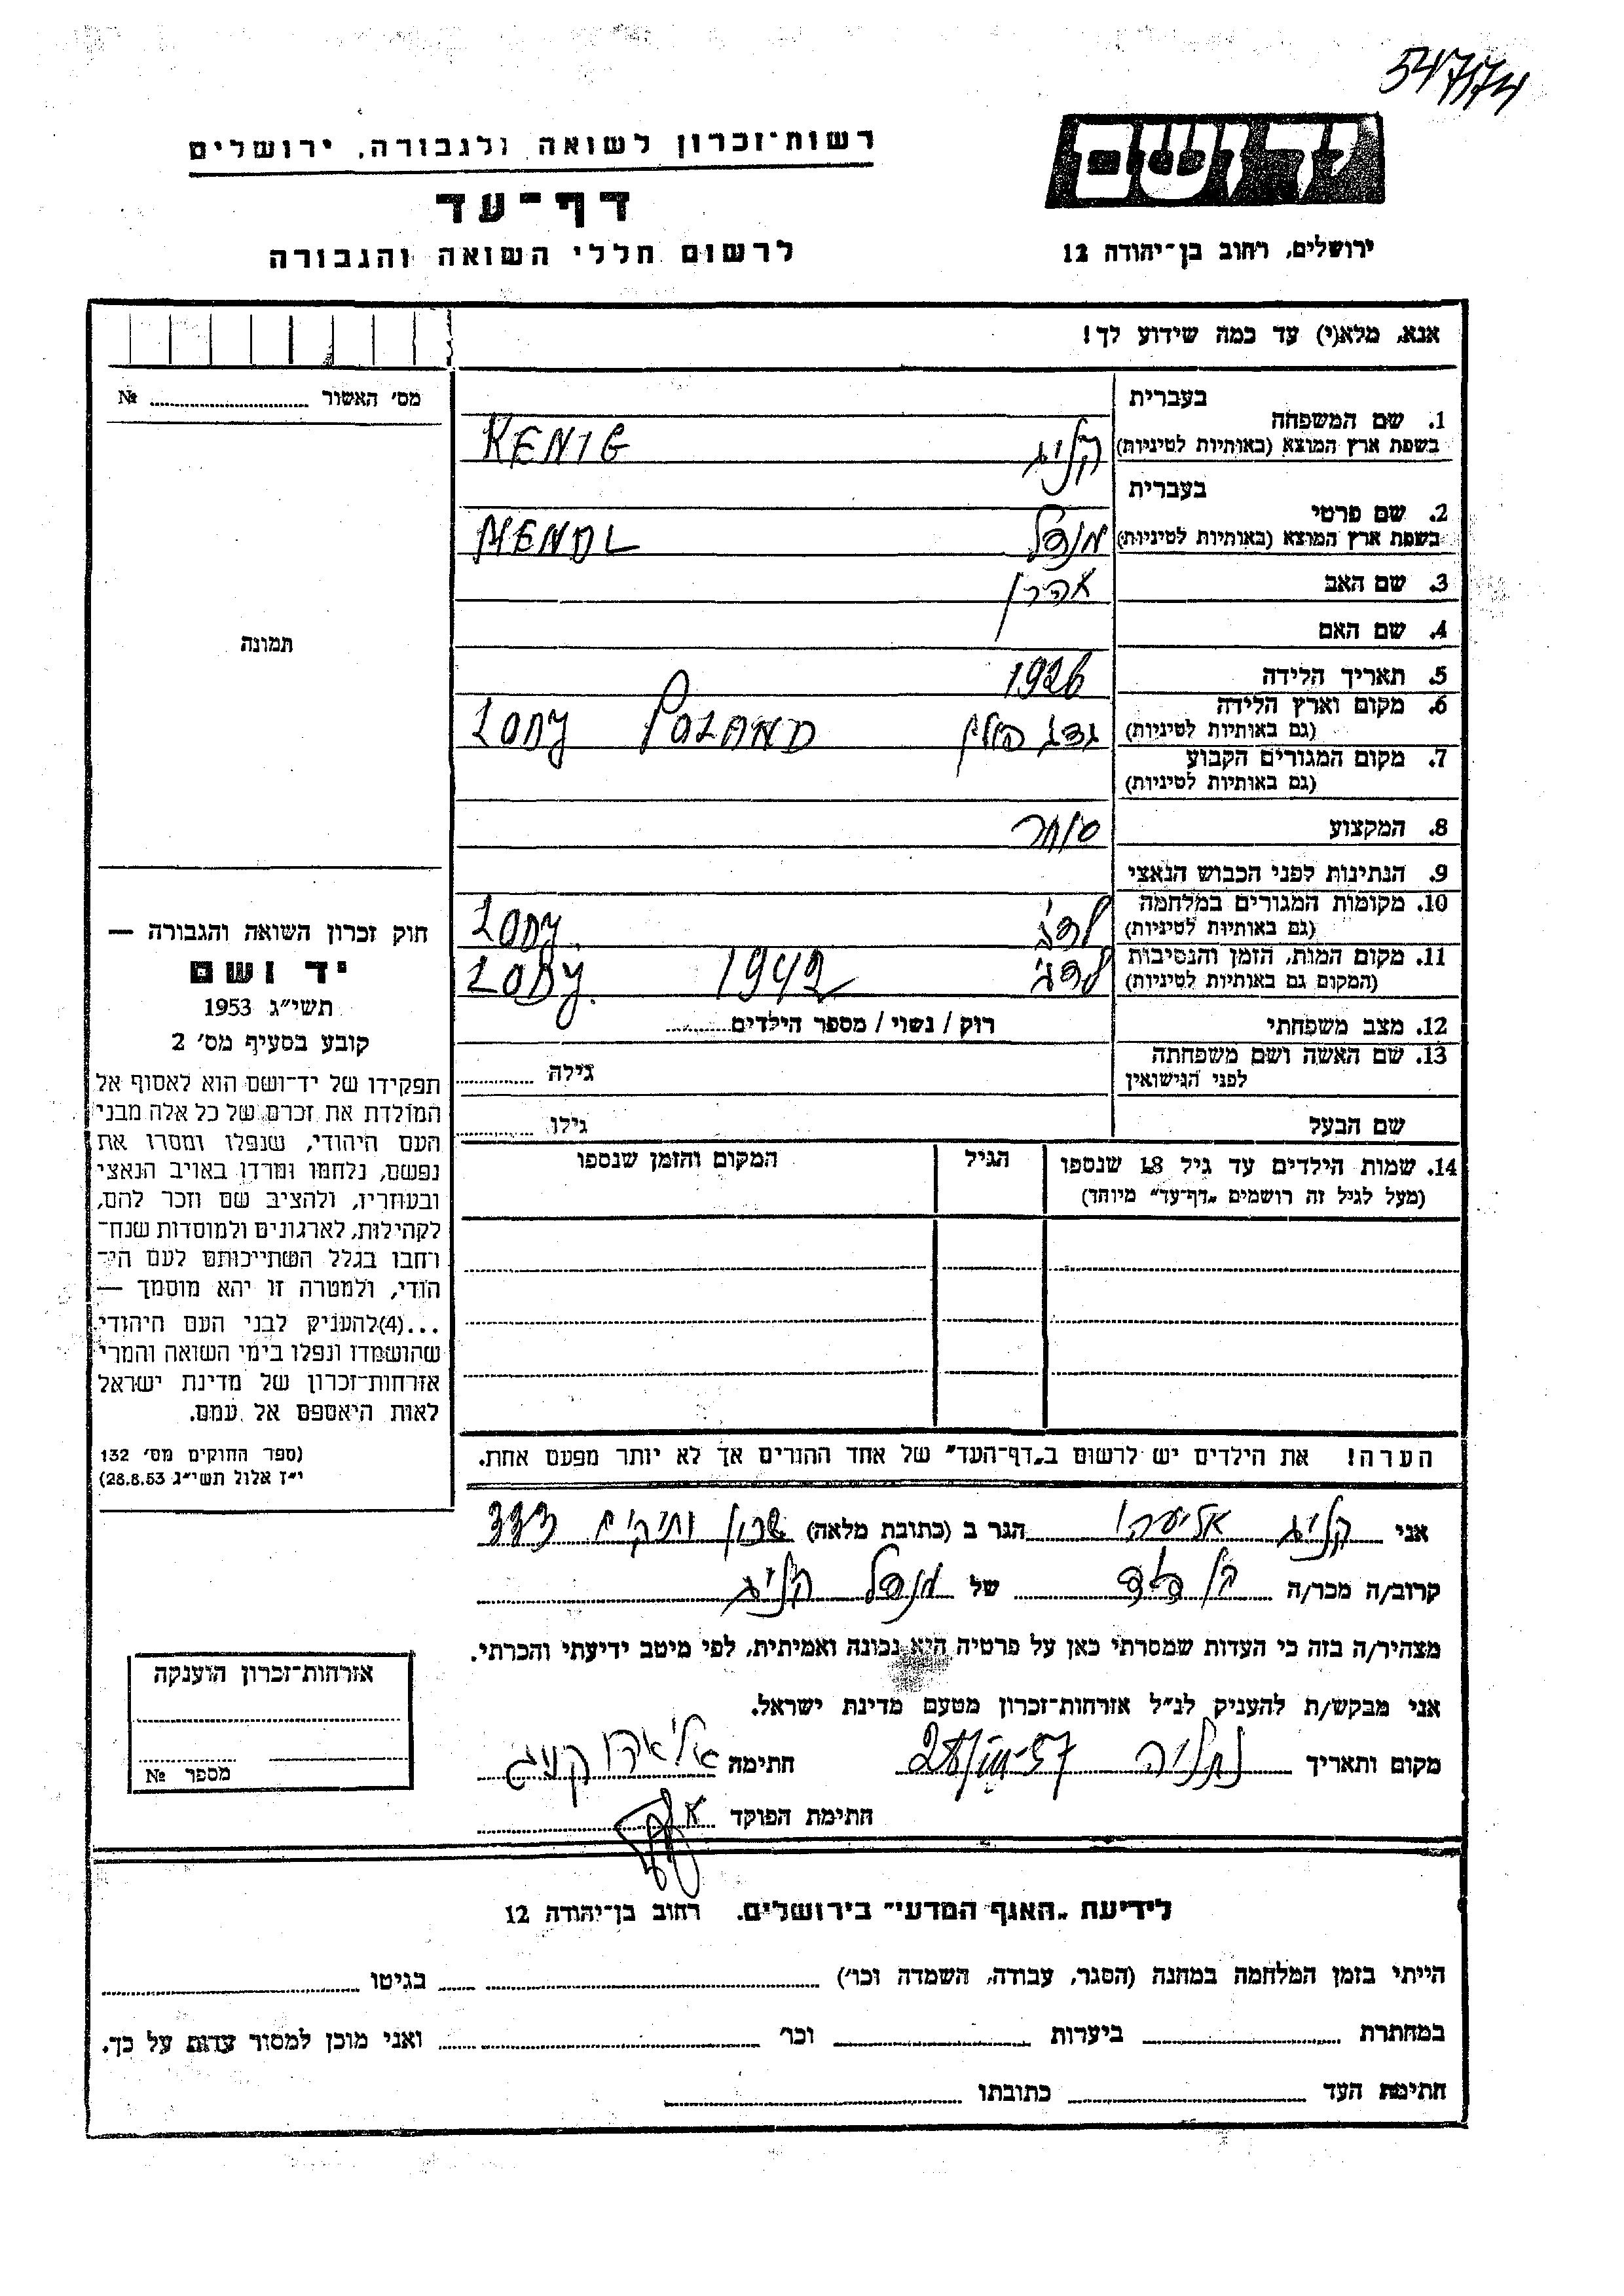 547174
יד ושם
רשות-זכרון לשואה ולגבורה, ירושלים
דף-עד
לרשום חללי השואה והגבורה
ירושלים, רחוב בן-יהודה 12
אנא, מלא(י) עד כמה שידוע לך!
מס' האשור № 
תמונה
1. שם המשפחה
בעברית
בשפת ארץ המוצא (באותיות לטיניות)
קניג KENIG
2. שם פרטי
בעברית
בשפת ארץ המוצא (באותיות לטיניות)
מנדל MENDL
3. שם האב אהרן
4. שם האם
5. תאריך הלידה 1926
6. מקום וארץ הלידה
(גם באותיות לטיניות)
פולין LODY POLAND
7. מקום המגורים הקבוע
(גם באותיות לטיניות)
8. המקצוע סוחר
9. הנתינות לפני הכבוש הנאצי
10. מקומות המגורים במלחמה
(גם באותיות לטיניות)
לודג' LODY.
11. מקום המות, הזמן והנסיבות
(המקום גם באותיות לטיניות)
לודג' 1942 LODY.
12. מצב משפחתי רוק / נשוי / מספר הילדים
13. שם האשה ושם משפחתה
לפני הנישואין
גילה
שם הבעל גילו
14. שמות הילדים עד גיל 18 שנספו
(מעל לגיל זה רושמים „דף-עד" מיוחד)
הגיל
המקום והזמן שנספו
חוק זכרון השואה והגבורה —
יד ושם
תשי"ג 1953
קובע בסעיף מס' 2
תפקידו של יד-ושם הוא לאסוף אל
המולדת את זכרם של כל אלה מבני
העם היהודי, שנפלו ומסרו את
נפשם, נלחמו ומרדו באויב הנאצי
ובעוזריו, ולהציב שם וזכר להם,
לקהילות, לארגונים ולמוסדות שנח-
רחבו בגלל השתייכותם לעם הי-
הודי, ולמטרה זו יהא מוסמך —
...(4)להעניק לבני העם היהודי
שהושמדו ונפלו בימי השואה והמרי
אזרחות-זכרון של מדינת ישראל
לאות היאספם אל עמם.
(ספר החוקים מס' 132
י"ז אלול תשי"ג 28.8.53)
הערה! את הילדים יש לרשום ב„דף-העד" של אחד ההורים אך לא יותר מפעם אחת.
אני קניג אליעהו הגר ב (כתובת מלאה) שכון ותיקים 333
קרוב/ה מכר/ה בן דוד של מנדל קניג
מצהיר/ה בזה כי העדות שמסרתי כאן על פרטיה היא נכונה ואמיתית, לפי מיטב ידיעתי והכרתי.
אני מבקש/ת להעניק לנ"ל אזרחות-זכרון מטעם מדינת ישראל.
מקום ותאריך נתניה חתימה קניג
חתימת הפוקד
אזרחות-זכרון הוענקה
מספר №
לידיעת „האגף המדעי" בירושלים. רחוב בן-יהודה 12
הייתי בזמן המלחמה במחנה (הסגר, עבודה, השמדה וכו') בגיטו
במחתרת ביערות וכו' ואני מוכן למסור עדות על כך.
חתימת העד כתובתו